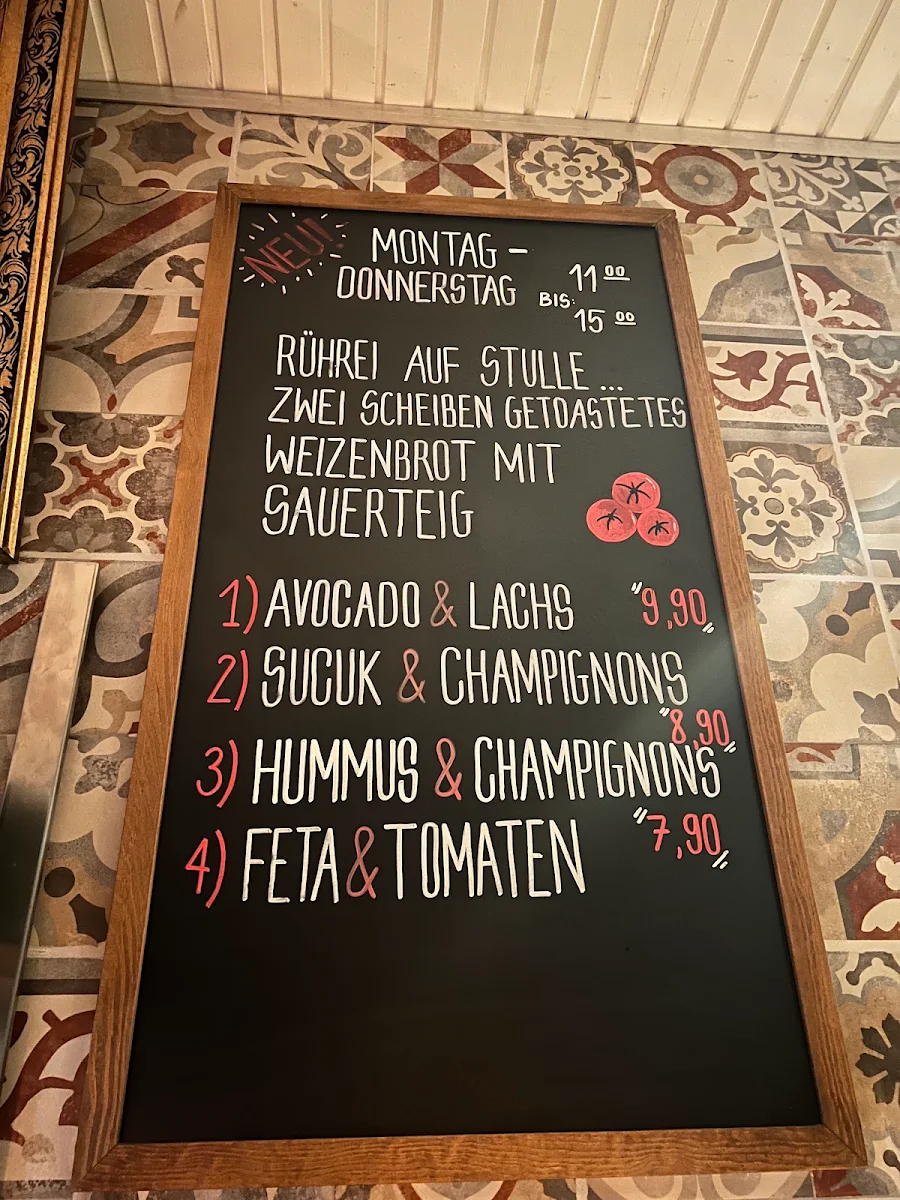 NEU!
MONTAG –
DONNERSTAG
11 00
BIS:
15 00
RÜHREI AUF STULLE ...
ZWEI SCHEIBEN GETOASTETES
WEIZENBROT MIT
SAUERTEIG
1) AVOCADO & LACHS "9,90"
2) SUCUK & CHAMPIGNONS
"8,90"
3) HUMMUS & CHAMPIGNONS
"7,90"
4) FETA & TOMATEN